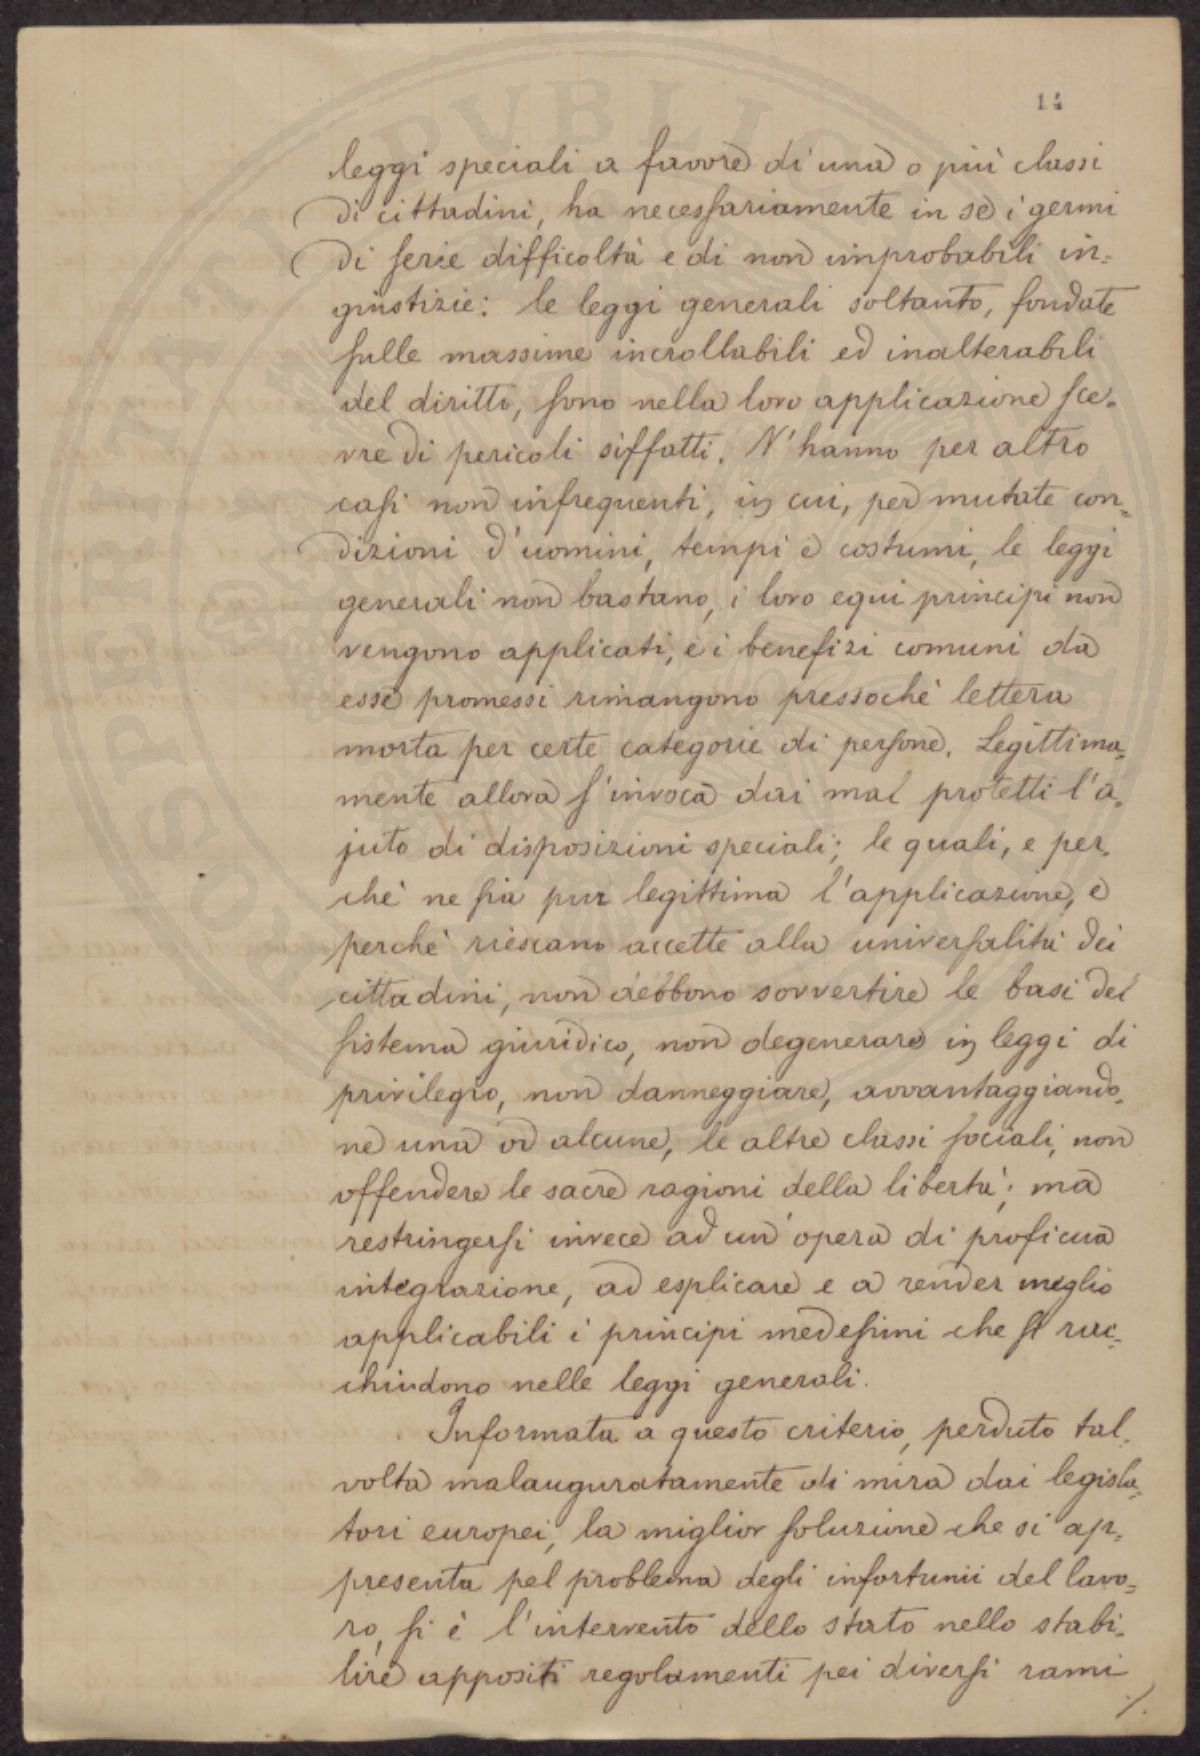 14
leggi speciali a favore di una o più classi
di cittadini, ha necessariamente in sè i germi
di serie difficoltà e di non improbabili in=
giustizie: le leggi generali soltanto, fondate
sulle massime incrollabili ed inalterabili
del diritto, sono nella loro applicazione sce=
vre di pericoli siffatti. N'hanno per altro
casi non infrequenti, in cui, per mutate con=
dizioni d'uomini, tempi e costumi, le leggi
generali non bastano, i loro equi principi non
vengono applicati, e i benefizi comuni da
esse promessi rimangono pressochè lettera
morta per certe categorie di persone. Legittima=
mente allora s'invoca dai mal protetti l'a=
juto di disposizioni speciali; le quali, e per=
chè ne sia pur legittima l'applicazione, e
perchè riescano accette alla universalità dei
cittadini, non debbono sovvertire le basi del
sistema giuridico, non degenerare in leggi di
privilegio, non danneggiare, avvantaggiando=
ne una od alcune, le altre classi sociali, non
offendere le sacre ragioni della libertà; ma
restringersi invece ad un'opera di proficua
integrazione, ad esplicare e a render meglio
applicabili i principi medesimi che si rac=
chiudono nelle leggi generali.
Informata a questo criterio, perduto tal=
volta malauguratamente di mira dai legisla=
tori europei, la miglior soluzione che si ap=
presenta pel problema degli infortunii del lavo=
ro, si è l'intervento dello stato nello stabi=
lire appositi regolamenti pei diversi rami
./.
PROSPERITATI PVBLICAE